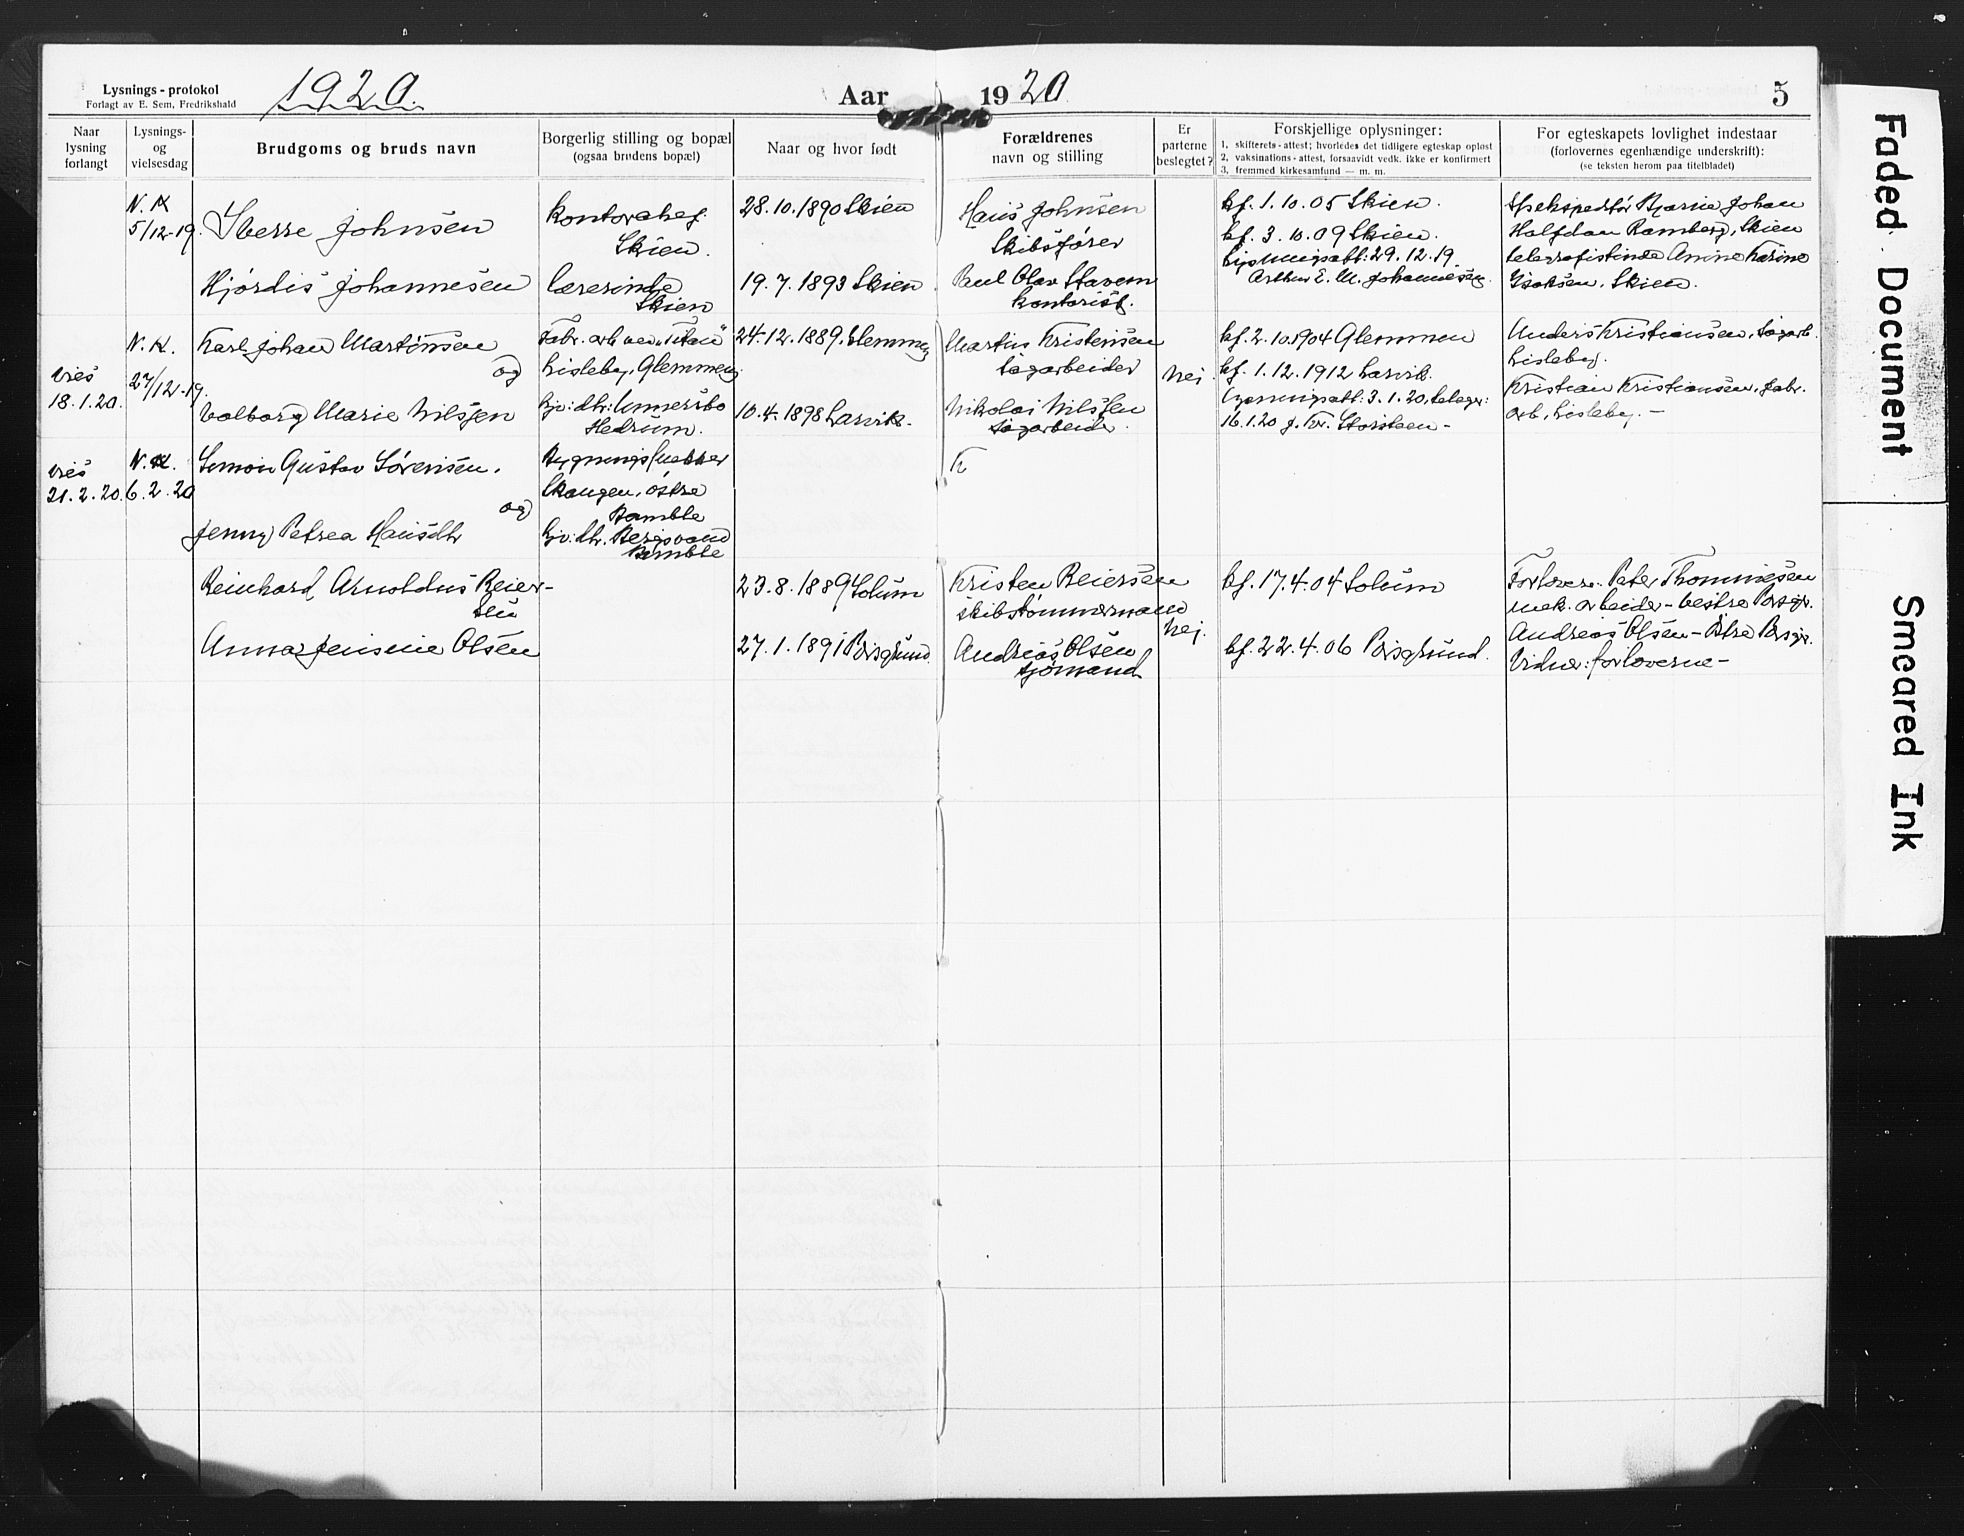 Lysnings-protokol
Forlagt av E. Sem, Fredrikshald
1920.
Aar 1920
5
Naar lysning forlangt
Lysnings- og vielsesdag
Brudgoms og bruds navn
Borgerlig stilling og bopæl
(ogsaa brudens bopæl)
Naar og hvor født
Forældrenes
navn og stilling
Er parterne beslegtet?
Forskjellige oplysninger:
1, skifterets-attest; hvorledes det tidligere egteskap opløst
2, vaksinations-attest, forsaavidt vedk. ikke er konfirmert
3, fremmed kirkesamfund — m. m.
For egteskapets lovlighet indestaar
(forlovernes egenhændige underskrift):
(se teksten herom paa titelbladet)
N. K
5/12-19.
Sverre Johnsen
Kontorchef.
Skien.
28.10.1890 Skien
Hans Johnsen
Skibsfører
kf. 1.10.05 Skien.
kf. 3.10.09 Skien.
Lysningsatt. 29.12.19.
Arthur E. M. Johannesen.
Ekspeditør Bjarne Johan
Halfdan Ramberg, Skien
telegrafistinde Anine Karine
Isaksen. Skien.
Hjørdis Johannesen
lærerinde
Skien
19.7.1893 Skien
Paul Olav Stavem
kontorist.
vies
18.1.20.
N. K.
27/12-19.
Karl Johan Martinsen
og
Valborg Marie Nilssen
Fabr. arb. ved "Titan"
Lisleby, Glemmen
Gjv: dtr: Ummersbo
Hedrum.
24.12.1889. Glemmen
10.4.1898 Larvik.
Martin Kristensen
Sagarbeider
Nikolai Nilssen
Sagarbeider.
Nei.
kf. 2.10.1904 Glemmen
kf. 1.12.1912 Larvik.
Lysningsatt. 3.1.20, telegr:
16.1.20 f. Kr. Storsteen -
Anders Kristiansen, Sagarb.
Lisleby.
Kristian Kristiansen, fabr.
arb, Lisleby. —
vies
21.2.20
N. K.
6.2.20
Simon Gustav Sørensen.
og
Jenny Petrea Hansdtr
Bygningssnekker
Skaugen, østre
Bamble
Gjv: dtr. Bergsvand
Bamble
K
Reinhard Arnoldus Reier-
sen
Anna Jensine Olsen
23.8.1889 Solum
27.1.1891 Porsgrund.
Kristen Reiersen
skibstømmermand
Andreas Olsen
sjømand
Nei.
kf. 17.4.04 Solum
kf. 22.4.06 Porsgrund.
Forlovere: Peter Thommesen
mek. arbeider - Vestre Porsgr.
Andreas Olsen - Østre Porsgr.
Vidner: forloverne -
Faded Document
Smeared Ink